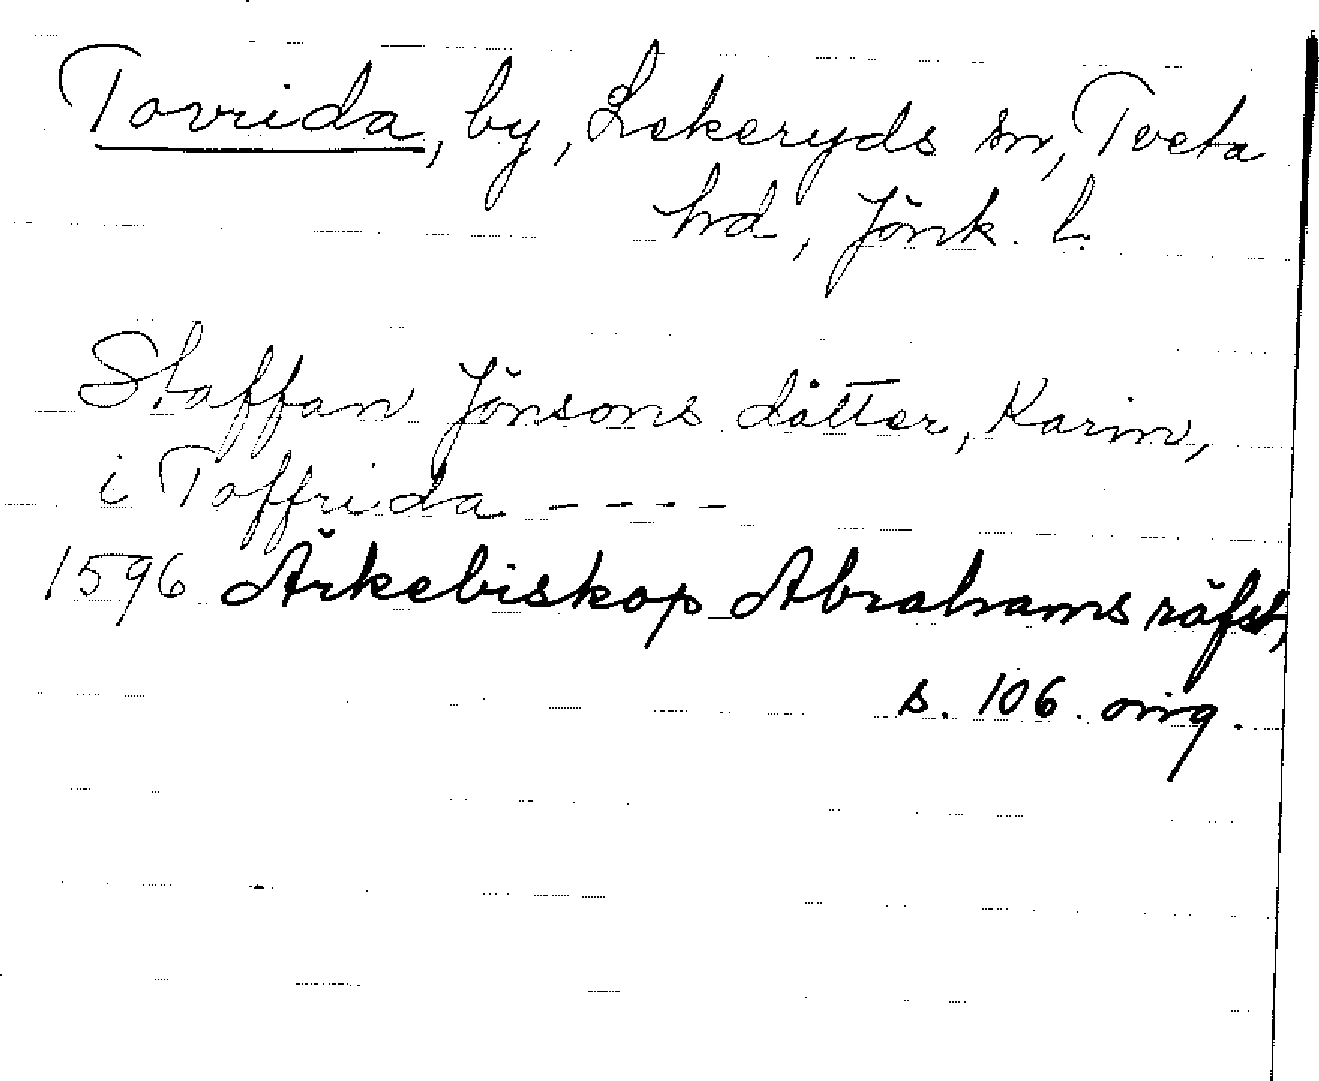 Tovrida, by, Lekeryds sn, Tveta
hd, Jönk. l.
Staffan Jönsons dåtter, Karin,
i Toffrida - - - -
1596 Ärkebiskop Abrahams räfst,
s. 106. orig.